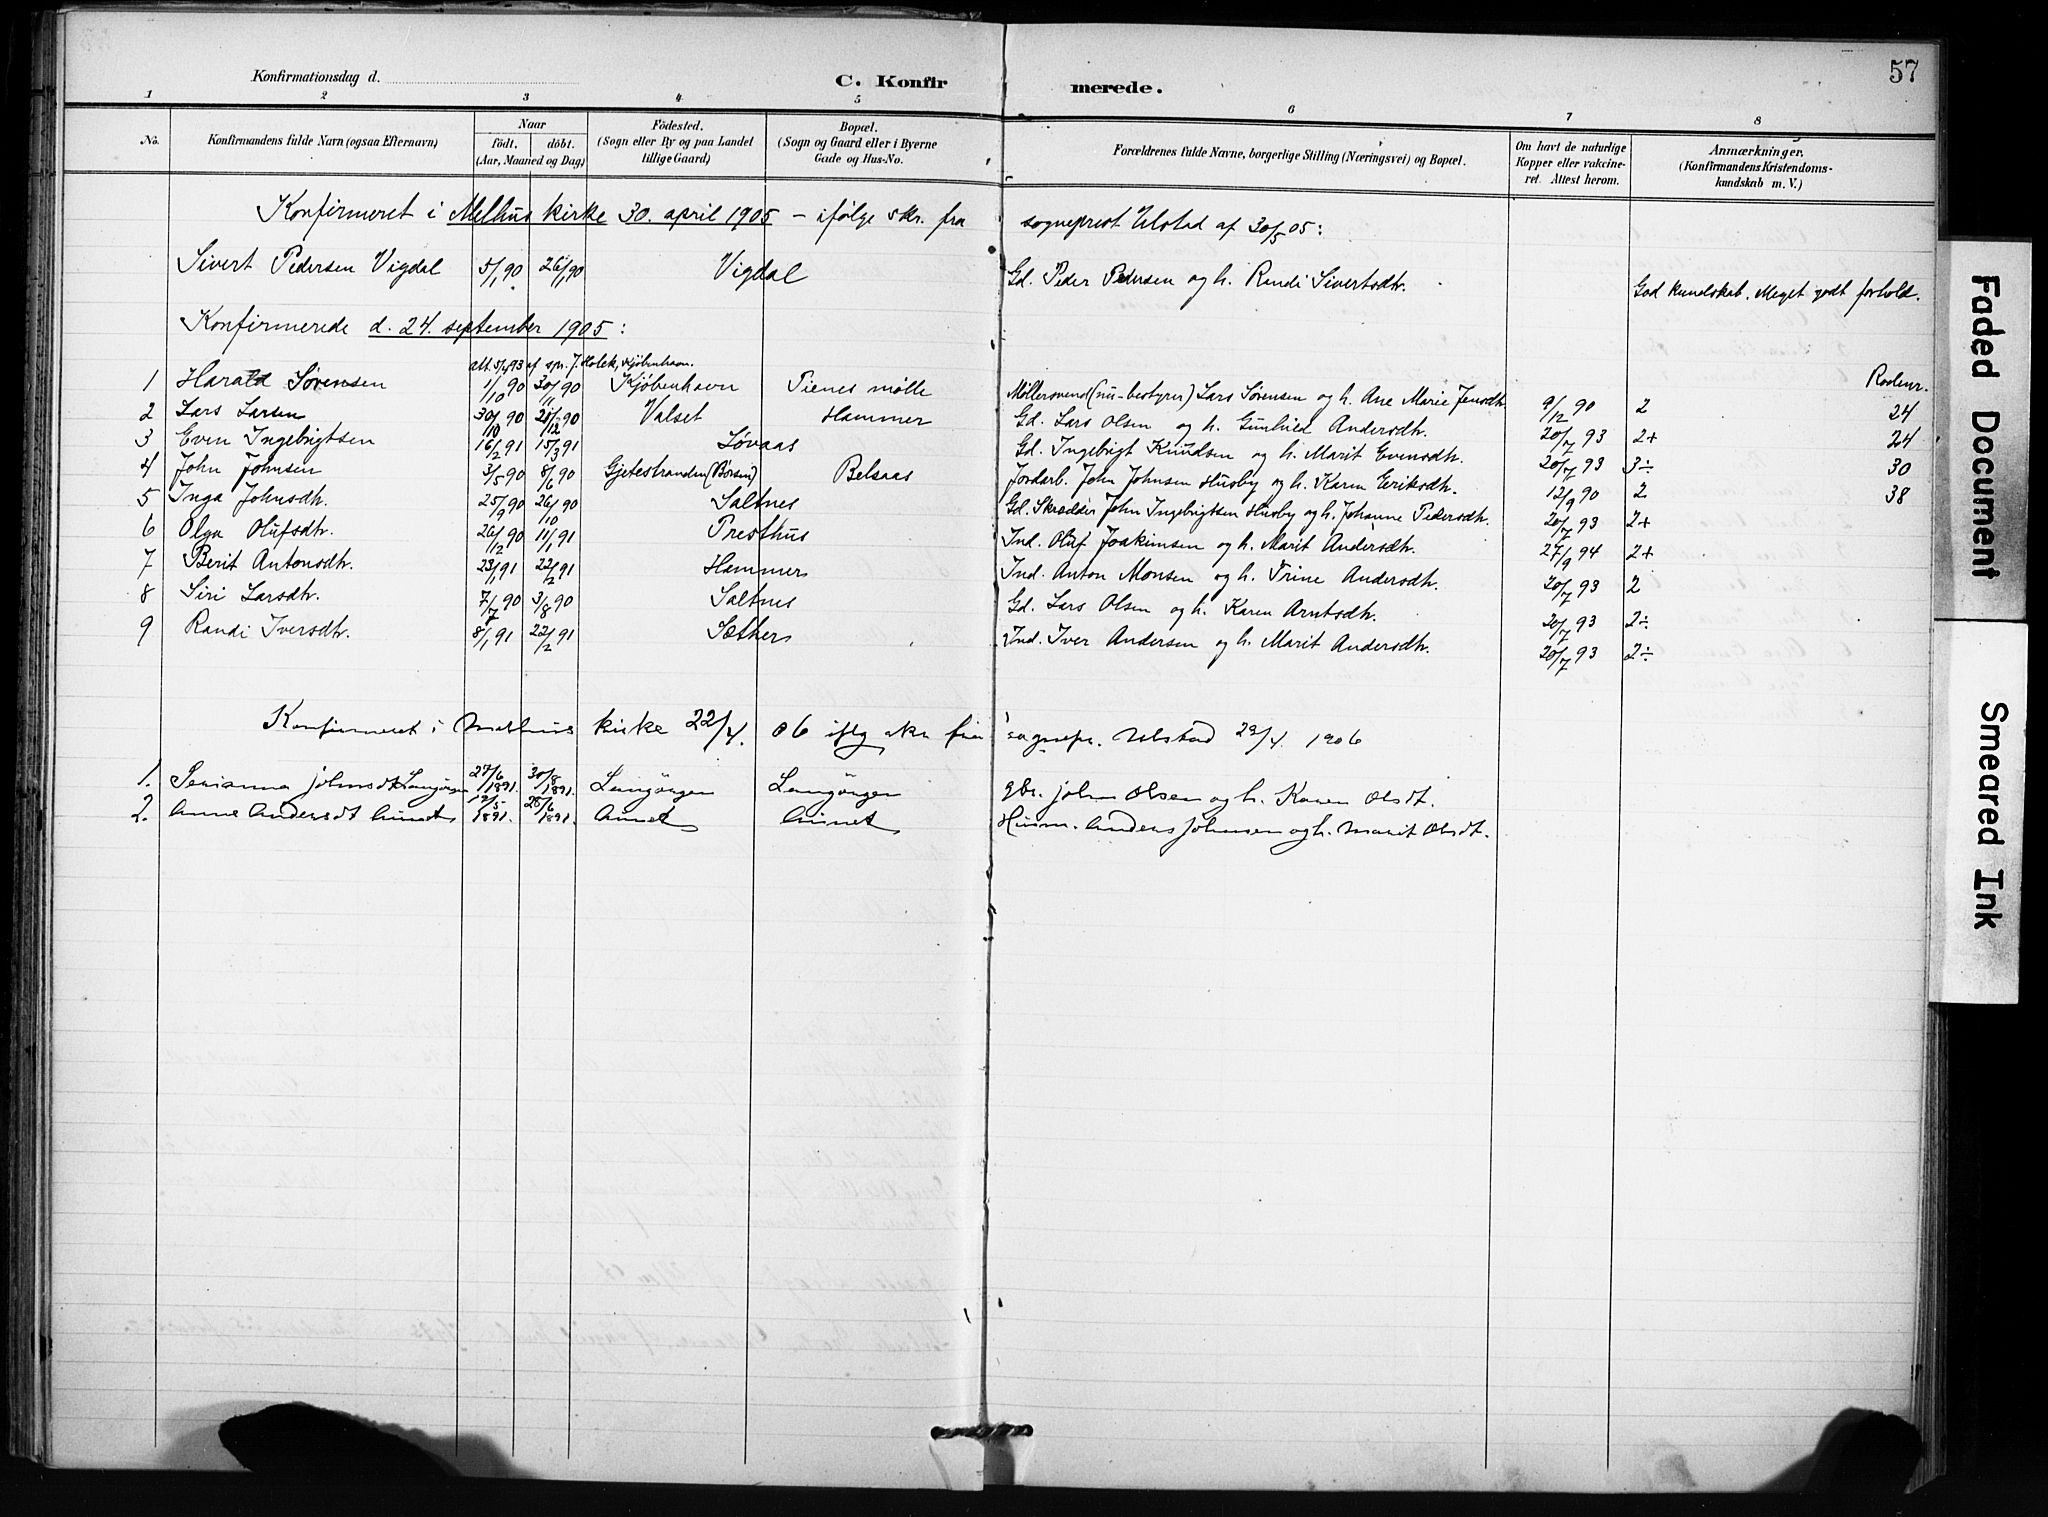 57
Konfirmationsdag d.
C. Konfir merede.
1 2 3 4 5 6 7 8
No. Konfirmandens fulde Navn (ogsaa Efternavn) Naar født. døbt. (Aar, Maaned og Dag) Fødested. (Sogn eller By og paa Landet tillige Gaard) Bopæl. (Sogn og Gaard eller i Byerne Gade og Hus-No. Forældrenes fulde Navne, borgerlige Stilling (Næringsvei) og Bopæl. Om havt de naturlige Kopper eller vakcineret. Attest herom. Anmærkninger. (Konfirmandens Kristendomskundskab m. V.)
Konfirmeret i Melhus kirke 30. april 1905 – ifølge skr. fra sogneprest Ulstad af 30/5 05:
Sivert Pedersen Vigdal 5/1 90 26/1 90 Vigdal Gd. Peder Pedersen og h. Randi Sivertsdtr. God kundskab. Meget godt forhold.
Konfirmerede d. 24. september 1905:
att. 5/4 93 af spr. J. Holck, Kjøbenhavn.
Rodenr.
1 Harald Sørensen 1/10 90 30/11 90 Kjøbenhavn Tienes mølle Møllersvend (nu-bestyrer) Lars Sørensen og h. Ane Marie Jensdtr. 9/12 90 2 24
2 Lars Larsen 30/10 90 21/12 90 Valset Hammer Gd. Lars Olsen og h. Gunhild Andersdtr. 20/7 93 2+ 24
3 Even Ingebrigtsen 16/2 91 15/3 91 Løvaas Gd. Ingebrigt Knudsen og h. Marit Evensdtr. 20/7 93 3÷ 30
4 John Johnsen 3/5 90 8/6 90 Gjetestranden (Børsen) Belsaas Jordarb. John Johnsen Husby og h. Karen Eriksdtr. 12/9 90 2 38
5 Inga Johnsdtr. 25/9 90 26/10 90 Saltnes Gd. Skrædder John Ingebrigtsen Husby og h. Johanne Pedersdtr. 20/7 93 2+
6 Olga Olufsdtr. 26/12 90 11/1 91 Presthus Ind. Oluf Joakimsen og h. Marit Andersdtr. 27/9 94 2+
7 Berit Antonsdtr. 23/1 91 22/2 91 Hammer Ind. Anton Monsen og h. Trine Andersdtr. 20/7 93 2
8 Siri Larsdtr. 7/7 90 3/8 90 Saltnes Gd. Lars Olsen og h. Karen Arntsdtr. 20/7 93 2÷
9 Randi Iversdtr. 8/1 91 22/2 91 Sæther Ind. Iver Andersen og h. Marit Andersdtr. 20/7 93 2÷
Konfirmeret i Melhus kirke 22/4. 06 iflg skr fra sognepr. Ulstad 29/4. 1906
1. Johnsdt Langørgen 27/6 1891. 30/8 1891. Langørgen Langørgen gbr. John Olsen og h. Karen Olsdt.
2. Anne Andersdt Aunet 12/5 1891. 28/6 1891. Aunet Aunet Husm. Anders Johnsen og h. Marit Olsdt.
Faded Document
Smeared Ink